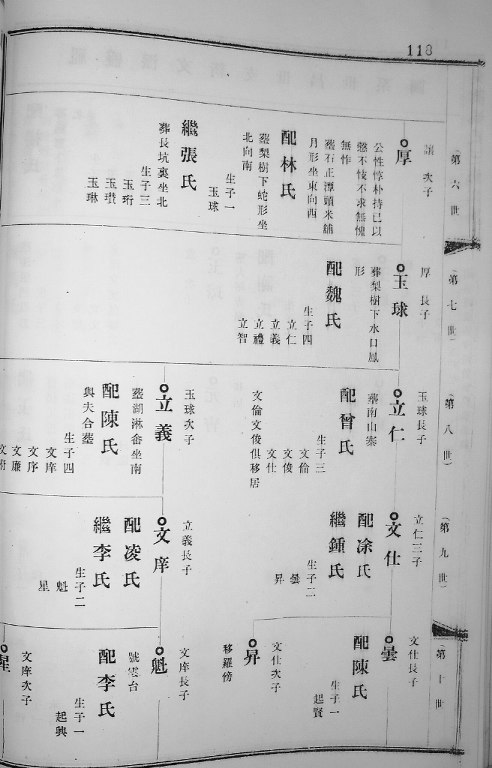 118
(第六世)
次子
厚
公性惇朴持己以
慤不忮不求無愧
無怍
墓石正潭頭米舖
月形坐東向西
配林氏
墓梨樹下蛇形坐
北向南
生子一
玉球
繼張氏
葬長坑裏坐北
生子三
玉珩
玉瓚
玉琳
(第七世)
厚長子
玉球
葬梨樹下水口鳳
形
配魏氏
生子四
立仁
立義
立禮
立智
(第八世)
玉球長子
立仁
葬南山寨
配曾氏
生子三
文倫
文俊
文仕
文倫文俊俱移居
玉球次子
立義
墓湖淋畲坐南
配陳氏
與夫合墓
生子四
文庠
文序
文廉
(第九世)
立仁三子
文仕
配凃氏
繼鍾氏
生子二
曇
昇
立義長子
文庠
配凌氏
繼李氏
生子二
魁
星
(第十世)
文仕長子
曇
配陳氏
生子一
起賢
文仕次子
昇
移羅傍
文庠長子
魁
號雲台
配李氏
生子一
起興
文庠次子
星